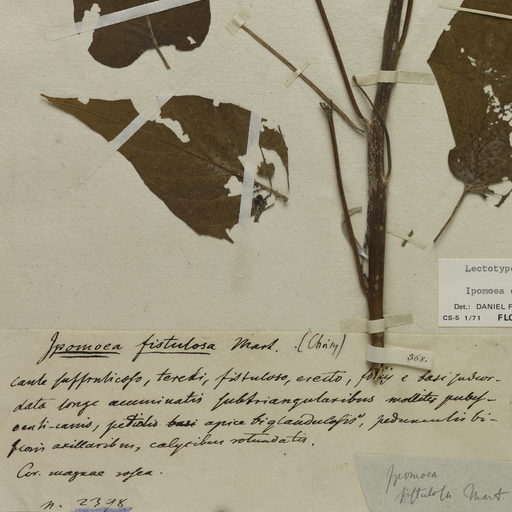 Lectotype
Ipomoea
Det.: DANIEL F
CS-5 1/71 FL
Ipomoea fistulosa Mart. (Choisy)
368.
caule suffruticoso, tereti, fistuloso, erecto, foliis e basi subcor-
data longe acuminatis subtriangularibus mollites pubes-
centi-canis, petiolis basi apice biglandulosis, pedunculis bi-
floris axillaribus, calycibus rotundatis.
Cor. magnae rosea.
n. 2398
Ipomoea
fistulosa Mart